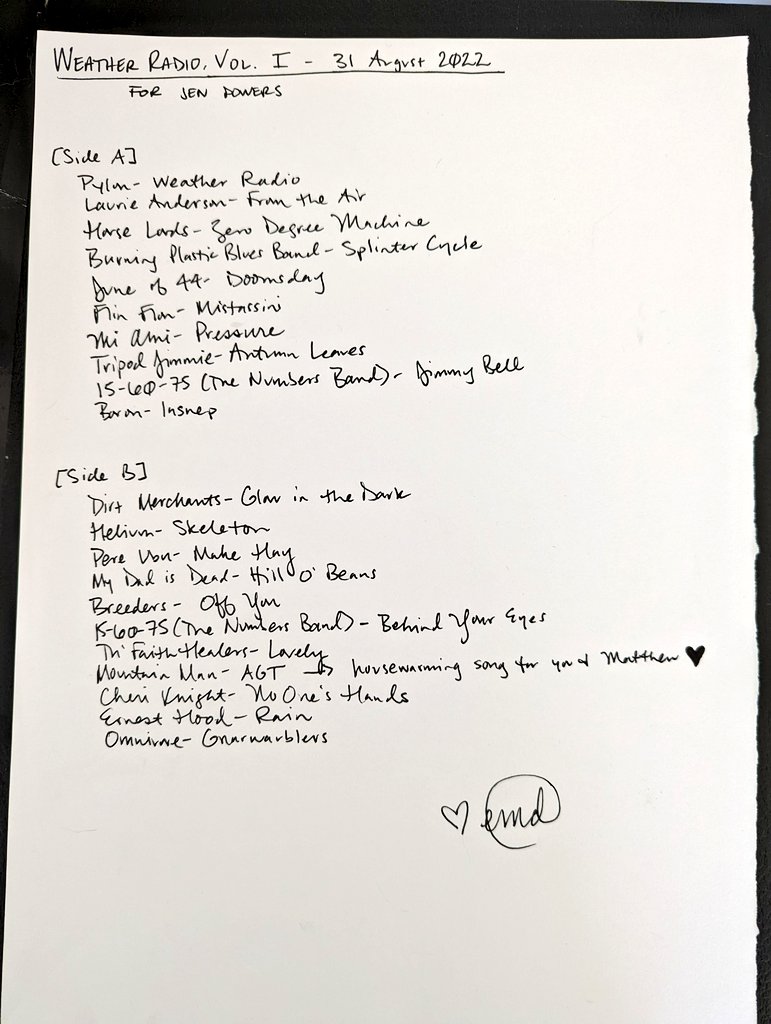 WEATHER RADIO, VOL. I - 31 August 2022
FOR JEN POWERS
[Side A]
Pylon - Weather Radio
Laurie Anderson - From the Air
Horse Lords - Zero Degree Machine
Burning Plastic Blues Band - Splinter Cycle
June of 44 - Doomsday
Flin Flon - Mistassini
Mi Ami - Pressure
Tripod Jimmie - Autumn Leaves
15-60-75 (The Numbers Band) - Jimmy Bell
- Insnep
[Side B]
Dirt Merchants - Glow in the Dark
Helium - Skeleton
Pere Ubu - Make Hay
My Dad is Dead - Hill O' Beans
Breeders - Off You
15-60-75 (The Numbers Band) - Behind Your Eyes
Th' Faith Healers - Lovely
Mountain Man - AGT → housewarming song for you & Matthew ♥
Cheri Knight - No One's Hands
Ernest Hood - Rain
Omnivore - Gnarwarblers
♡ emd